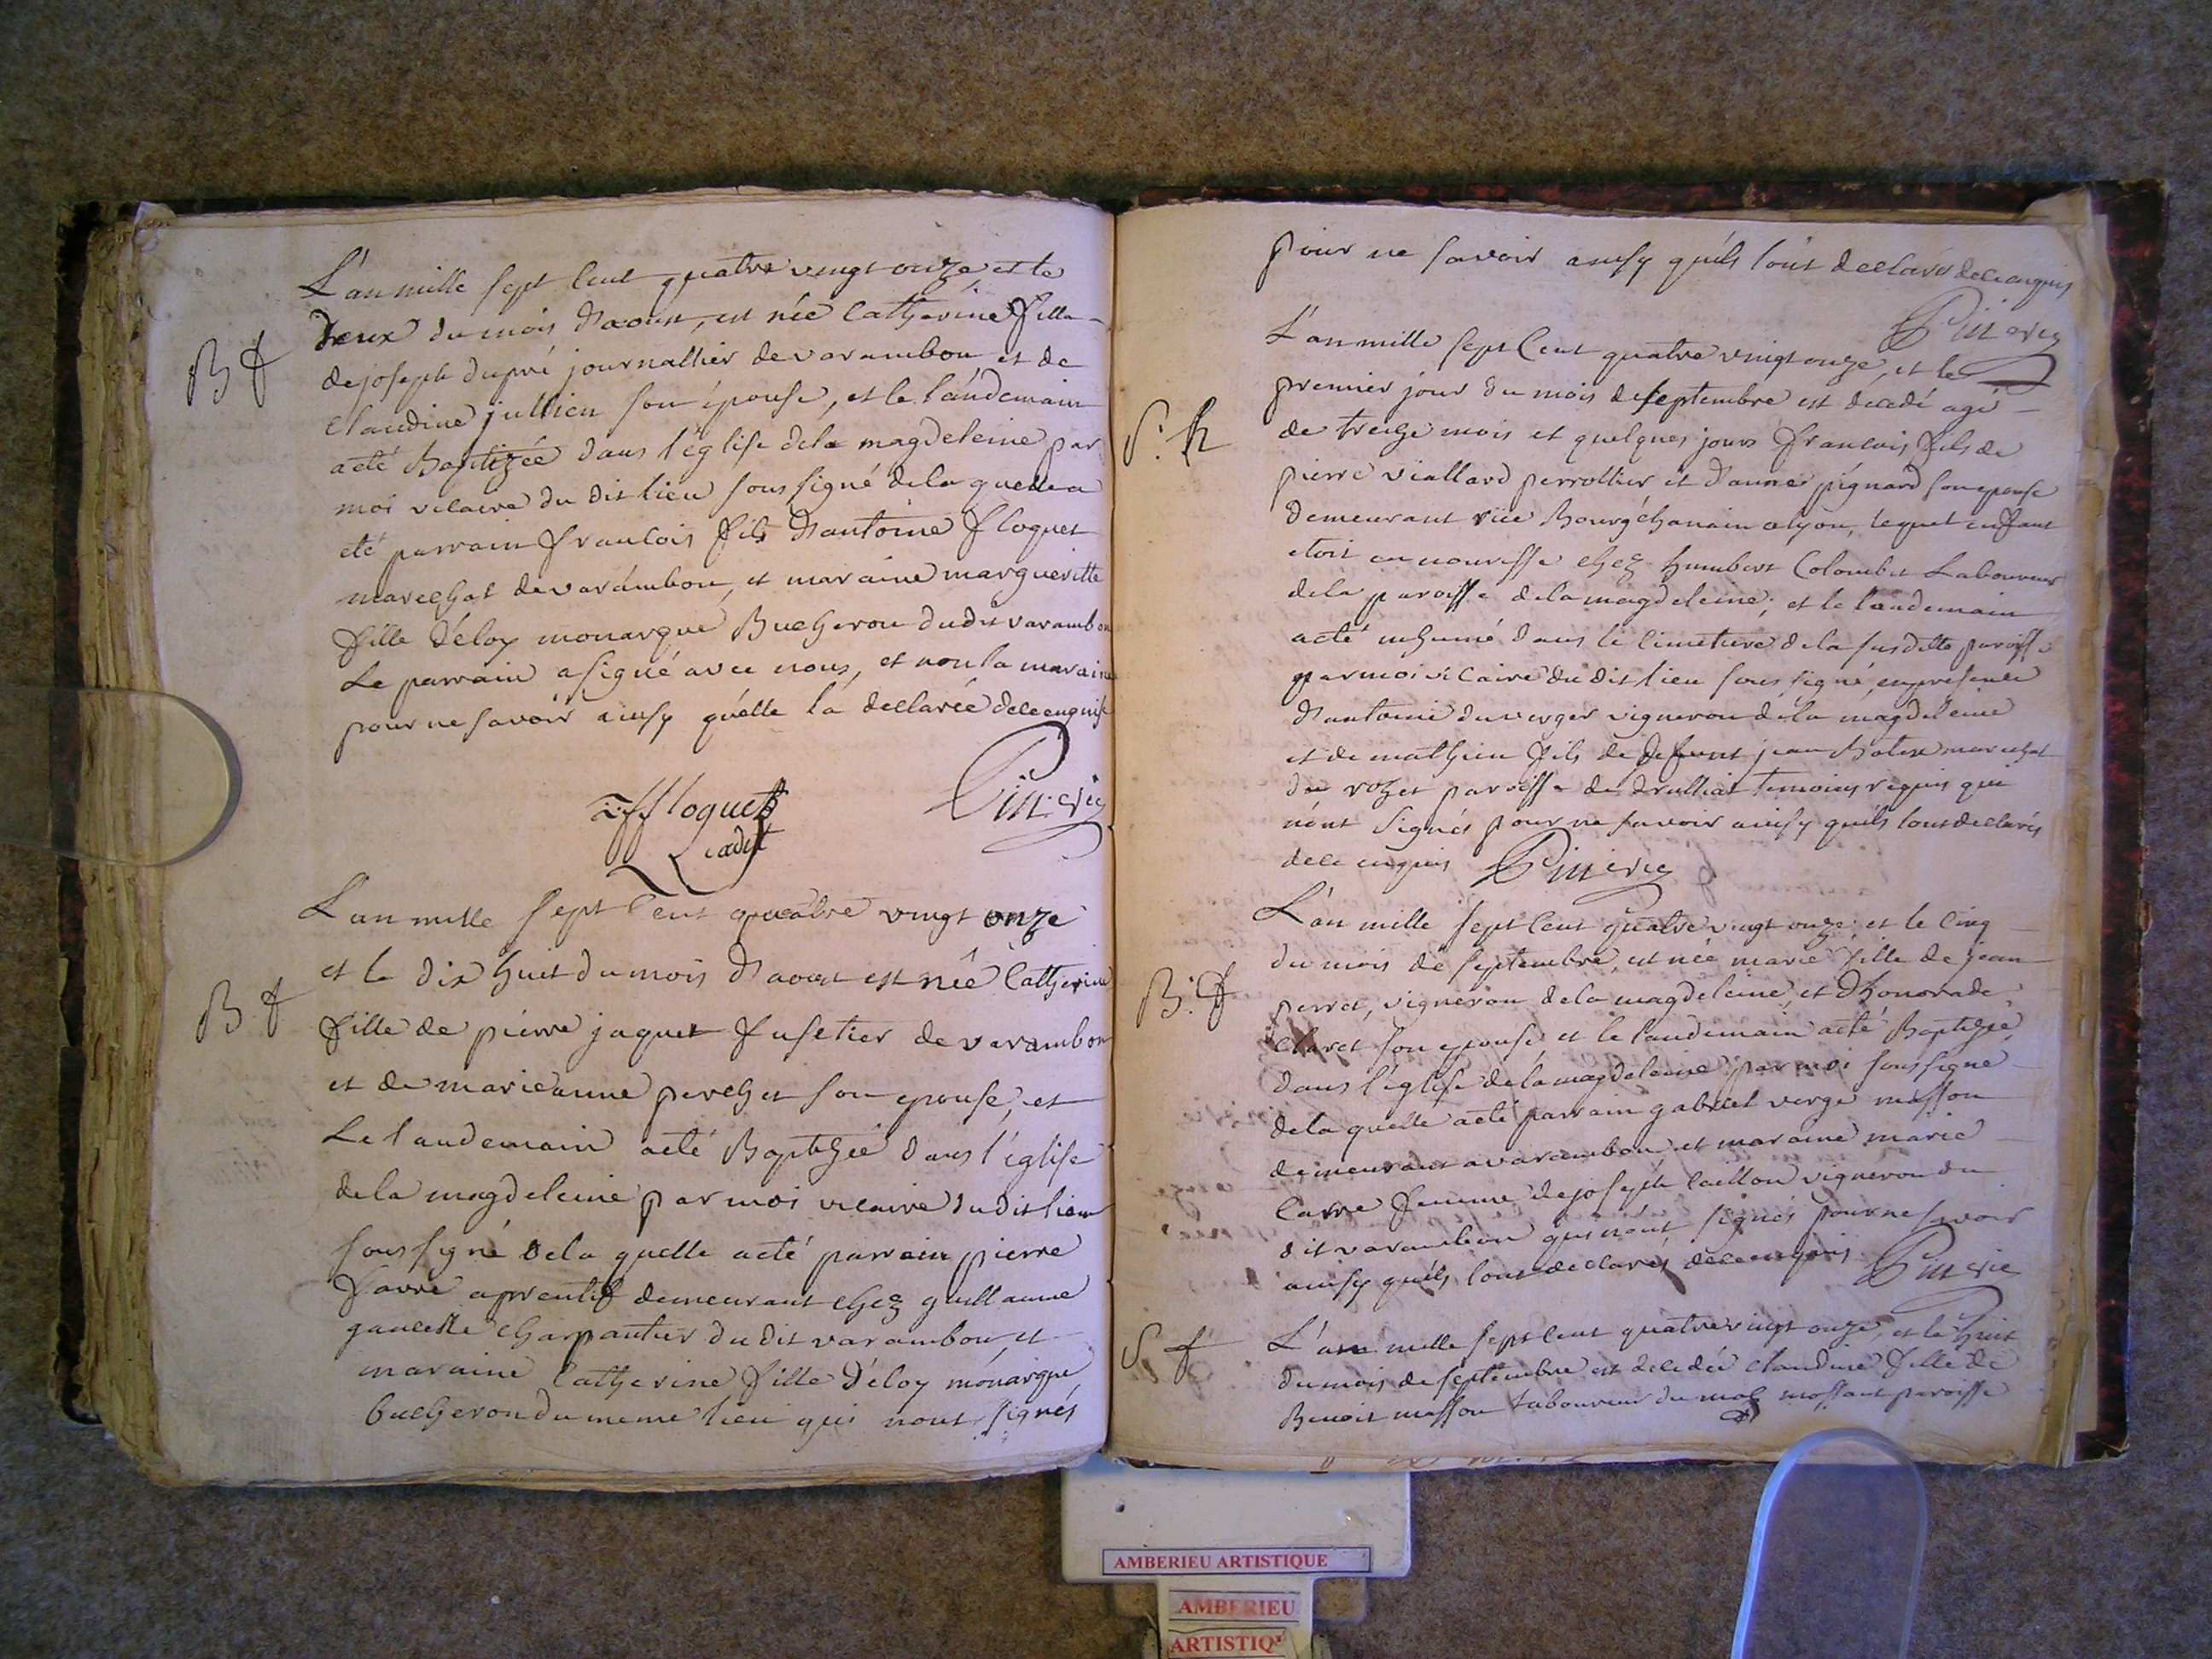 L'an mille sept Cent quatre vingt onze et le
deux du mois d'aoust, est née Catherine fille
B f
de joseph dupré journallier de varambon et de
Claudine jullien son épouse, et le landemain
aeté Baptizée dans l'église dela magdeleine par
moi vicaire du dit lieu soussigné dela quelle a
eté parrain francois fils d'antoine floquet
marechal de varambon, et maraine margueritte
fille d'éloy monarque Bucheron dudit varambon
Le parrain a signé avec nous, et non la maraine
pour ne savoir ainsy qu'elle la declarée de ce enquise
ffloquet
Pinerie
L'an mille sept Cent quatre vingt onze
et le dix huit du mois d'aoust est née Catherine
B f
fille de pierre jaquet fusetier de varambon
et de marieanne perchet son epouse, et
Le landemain aeté Baptizée dans l'église
dela magdeleine par moi vicaire dudit lieu
soussigné dela quelle aeté parrain pierre
favre aprentif demeurant chez guillaume
charpantier du dit varambon, et
maraine Catherine fille d'éloy monarque
bucheron du meme lieu qui nont signés
pour ne savoir ainsy qu'ils lont declarés de ce enquis
Pinerie
L'an mille sept Cent quatre vingt onze, et le
premier jour du mois de septembre est décedé agé
S. h
de treize mois et quelques jours francois fils de
pierre viallard perrollier et d'anne pignard son epouse
demeurant rüe Bourgchanain a lyon, lequel enfant
etoit en nourisse chez humbert Colombet Laboureur
dela paroisse dela magdeleine, et le landemain
aeté inhumé dans le cimetiere dela susditte paroisse
par moi vicaire du dit lieu soussigné, en presence
d'antoine duverger vigneron dela magdeleine
et de mathieu fils de defunt jean marechal
de rozet paroisse de druillat temoins requis qui
n'ont signés pour ne savoir ainsy qu'ils lont declarés
de ce enquis Pinerie
L'an mille sept Cent quatre vingt onze, et le cinq
du mois de septembre, est née marie fille de jean
B. f
perret, vigneron dela magdeleine, et d'honorade
claret son epouse, et le landemain aeté Baptizée
dans l'église dela magdeleine par moi soussigné
dela quelle aeté parrain gabriel verge masson
demeurant a varambon et maraine marie
Carre femme de joseph caillon vigneron du
dit varambon qui n'ont signés pour ne savoir
ainsy qu'ils lont declarés de ce enquis Pinerie
S f
L'an mille sept Cent quatre vingt onze, et le huit
du mois de septembre est decedée claudine fille de
Benoit masson laboureur du paroisse
AMBERIEU ARTISTIQUE
AMBERIEU
ARTISTIQ